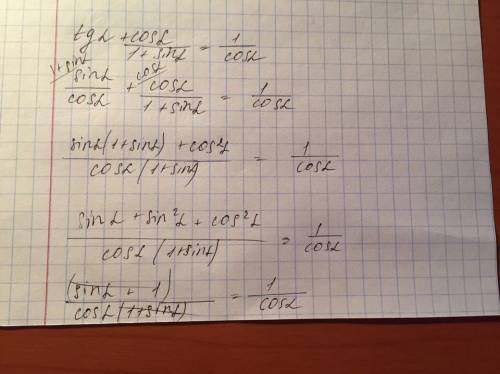 tgα + cosα/(1+sinα) = 1/cosα
1+sinα/ sinα/cosα + cosα/ cosα/(1+sinα) = 1/cosα
(sinα(1+sinα) + cos²α)/(cosα(1+sinα)) = 1/cosα
(sinα + sin²α + cos²α)/(cosα(1+sinα)) = 1/cosα
(sinα + 1)/(cosα(1+sinα)) = 1/cosα